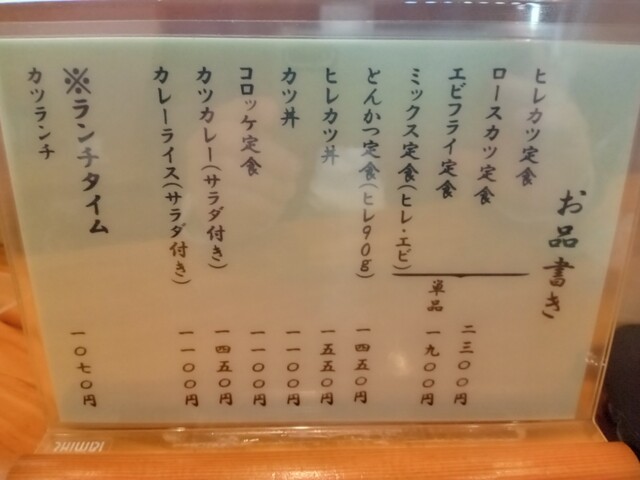 お品書き
ヒレカツ定食
ロースカツ定食
エビフライ定食
ミックス定食(ヒレ・エビ)
二三〇〇円
単品 一九〇〇円
とんかつ定食(ヒレ90g) 一四五〇円
ヒレカツ丼 一五五〇円
カツ丼 一一〇〇円
コロッケ定食 一一〇〇円
カツカレー(サラダ付き) 一四五〇円
カレーライス(サラダ付き) 一一〇〇円
※ランチタイム
カツランチ 一〇七〇円